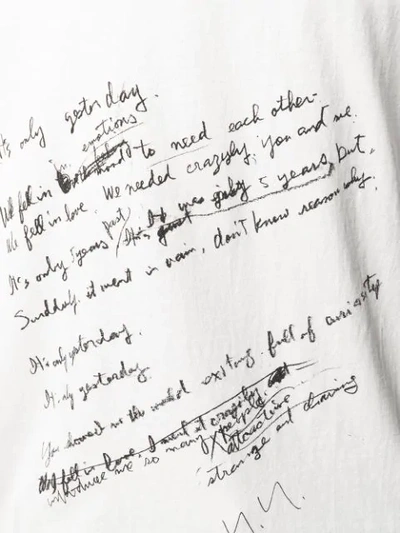 It's only yesterday.
We fell in emotions to need each other.
We fell in love. We needed crazyly, you and me.
It's only 5 years past. It was only 5 years, but,
Sunddaly. it went in vain, don't know reason why.
It's only yesterday.
It's only yesterday.
You showed me the world exiting. full of curiosity
fell in love. I went it crazily
introduce me so many people.
attractive
strange and charming
Y.Y.